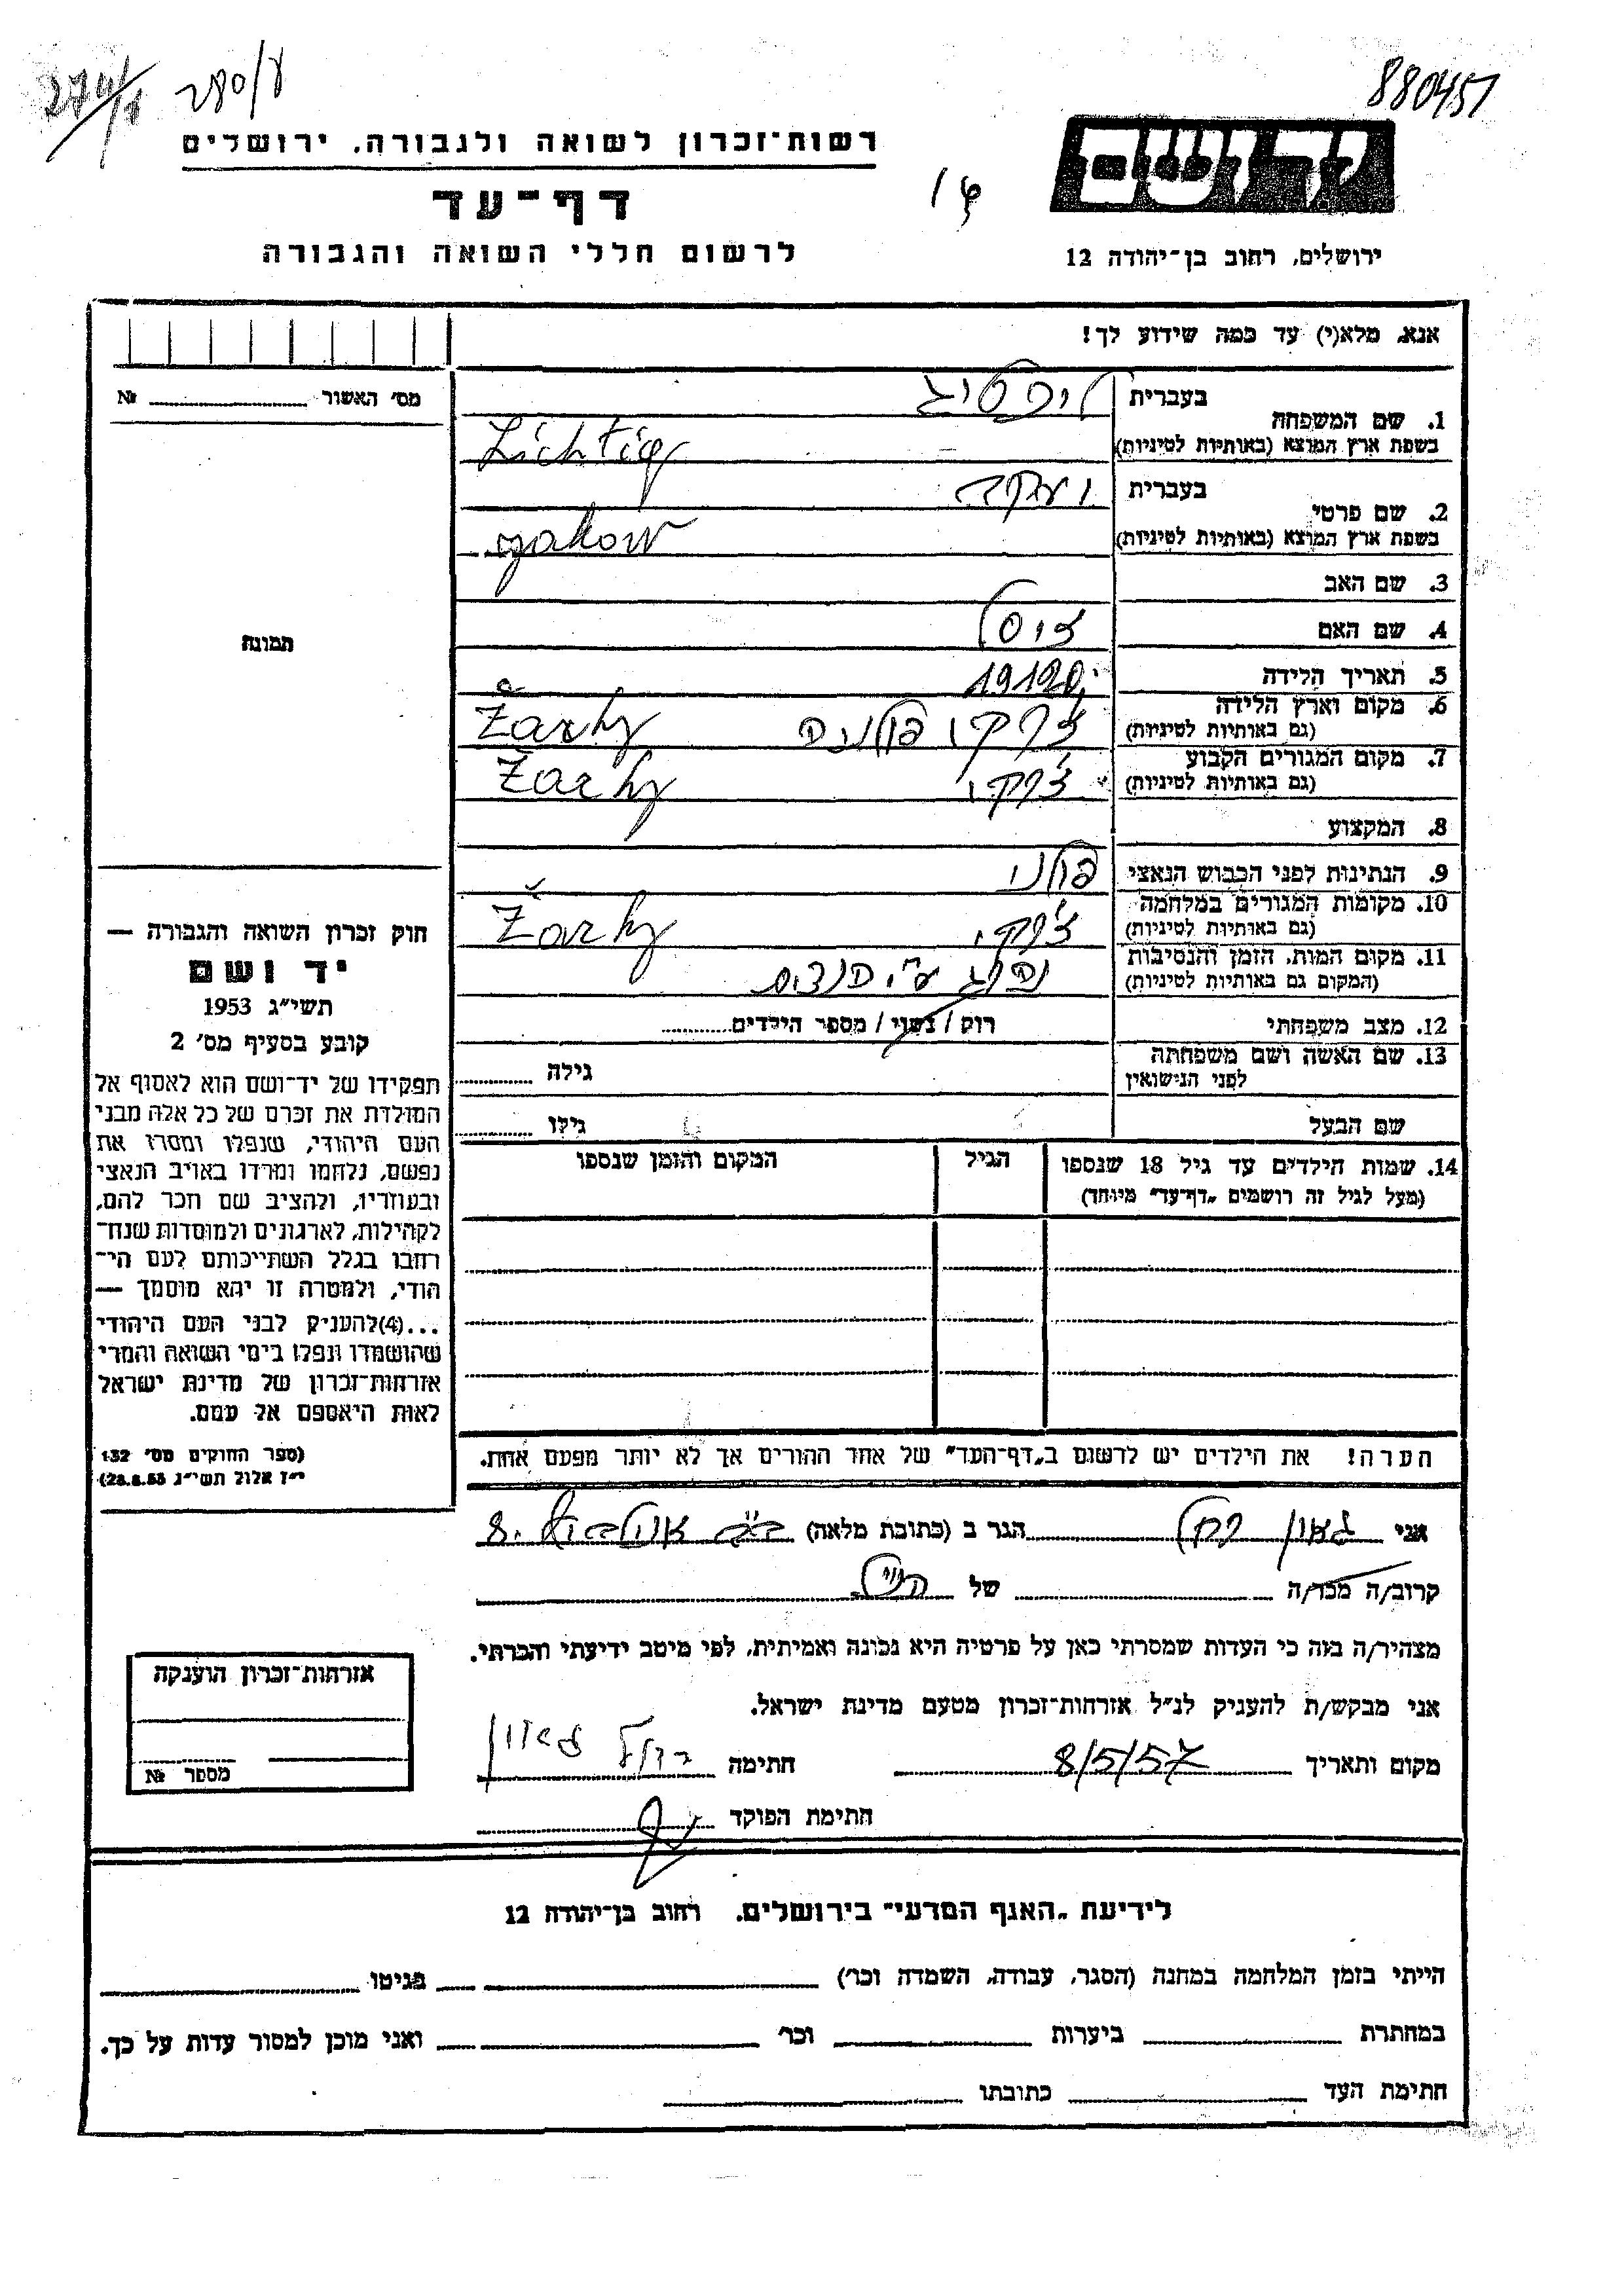 880451
280/ע
רשות־זכרון לשואה ולגבורה, ירושלים
דף־עד
לרשום חללי השואה והגבורה
יד ושם
ירושלים, רחוב בן־יהודה 12
אנא, מלא(י) עד כמה שידוע לך!
מס' האשור № 
1. שם המשפחה
בעברית ליכטיג
בשפת ארץ המוצא (באותיות לטיניות) Lichtig
2. שם פרטי
בעברית יעקב
בשפת ארץ המוצא (באותיות לטיניות) Jakow
3. שם האב
4. שם האם צוסל
5. תאריך הלידה
6. מקום וארץ הלידה
(גם באותיות לטיניות) ז'רקי פולניה Żarky
7. מקום המגורים הקבוע
(גם באותיות לטיניות) ז'רקי Żarky
8. המקצוע
9. הנתינות לפני הכבוש הנאצי פולני
10. מקומות המגורים במלחמה
(גם באותיות לטיניות) ז'רקי Żarky
11. מקום המות, הזמן והנסיבות
(המקום גם באותיות לטיניות) נהרג ע"י הנצים
12. מצב משפחתי רוק / נשוי / מספר הילדים
13. שם האשה ושם משפחתה
לפני הנישואין גילה
שם הבעל גילו
14. שמות הילדים עד גיל 18 שנספו הגיל המקום והזמן שנספו
(מעל לגיל זה רושמים "דף־עד" מיוחד)
הערה! את הילדים יש לרשום ב"דף־העד" של אחד ההורים אך לא יותר מפעם אחת.
תמונה
חוק זכרון השואה והגבורה —
יד ושם
תשי"ג 1953
קובע בסעיף מס' 2
תפקידו של יד־ושם הוא לאסוף אל
המולדת את זכרם של כל אלה מבני
העם היהודי, שנפלו ומסרו את
נפשם, נלחמו ומרדו באויב הנאצי
ובעוזריו, ולהציב שם וזכר להם,
לקהילות, לארגונים ולמוסדות שנח־
רחבו בגלל השתייכותם לעם הי־
הודי, ולמטרה זו יהא מוסמך —
...(4)להעניק לבני העם היהודי
שהושמדו ונפלו בימי השואה והמרי
אזרחות־זכרון של מדינת ישראל
לאות היאספם אל עמם.
(ספר החוקים מס' 132
י"ז אלול תשי"ג 28.8.53)
אני גאון רחל הגר ב (כתובת מלאה)
קרוב/ה מכר/ה של
מצהיר/ה בזה כי העדות שמסרתי כאן על פרטיה היא נכונה ואמיתית, לפי מיטב ידיעתי והכרתי.
אני מבקש/ת להעניק לנ"ל אזרחות־זכרון מטעם מדינת ישראל.
מקום ותאריך 8/5/57 חתימה רחל גאון
חתימת הפוקד
אזרחות־זכרון הוענקה
מספר №
לידיעת "האגף המדעי" בירושלים, רחוב בן־יהודה 12
הייתי בזמן המלחמה במחנה (הסגר, עבודה, השמדה וכר') בגיטו
במחתרת ביערות וכר' ואני מוכן למסור עדות על כך.
חתימת העד כתובתו